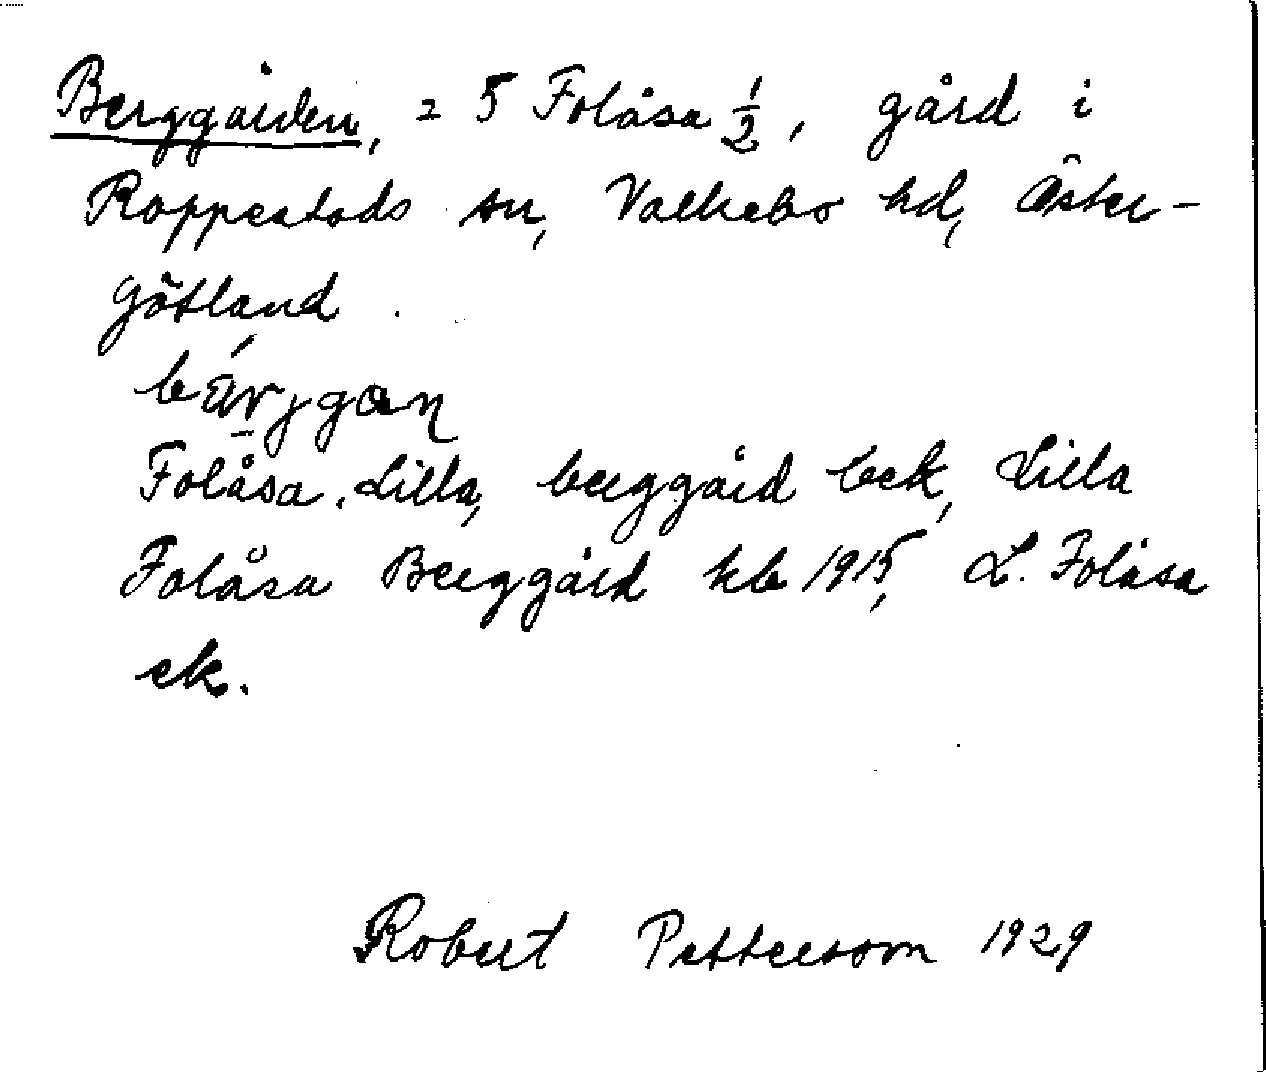 Berggården, = 5 Folåsa ½, gård i
Rappestads sn, Valkebo hd, Öster-
götland.
Folåsa. Lilla, berggård bek, Lilla
Folåsa Berggård kb 1915, L. Folåsa
ek.
Robert Pettersson 1929